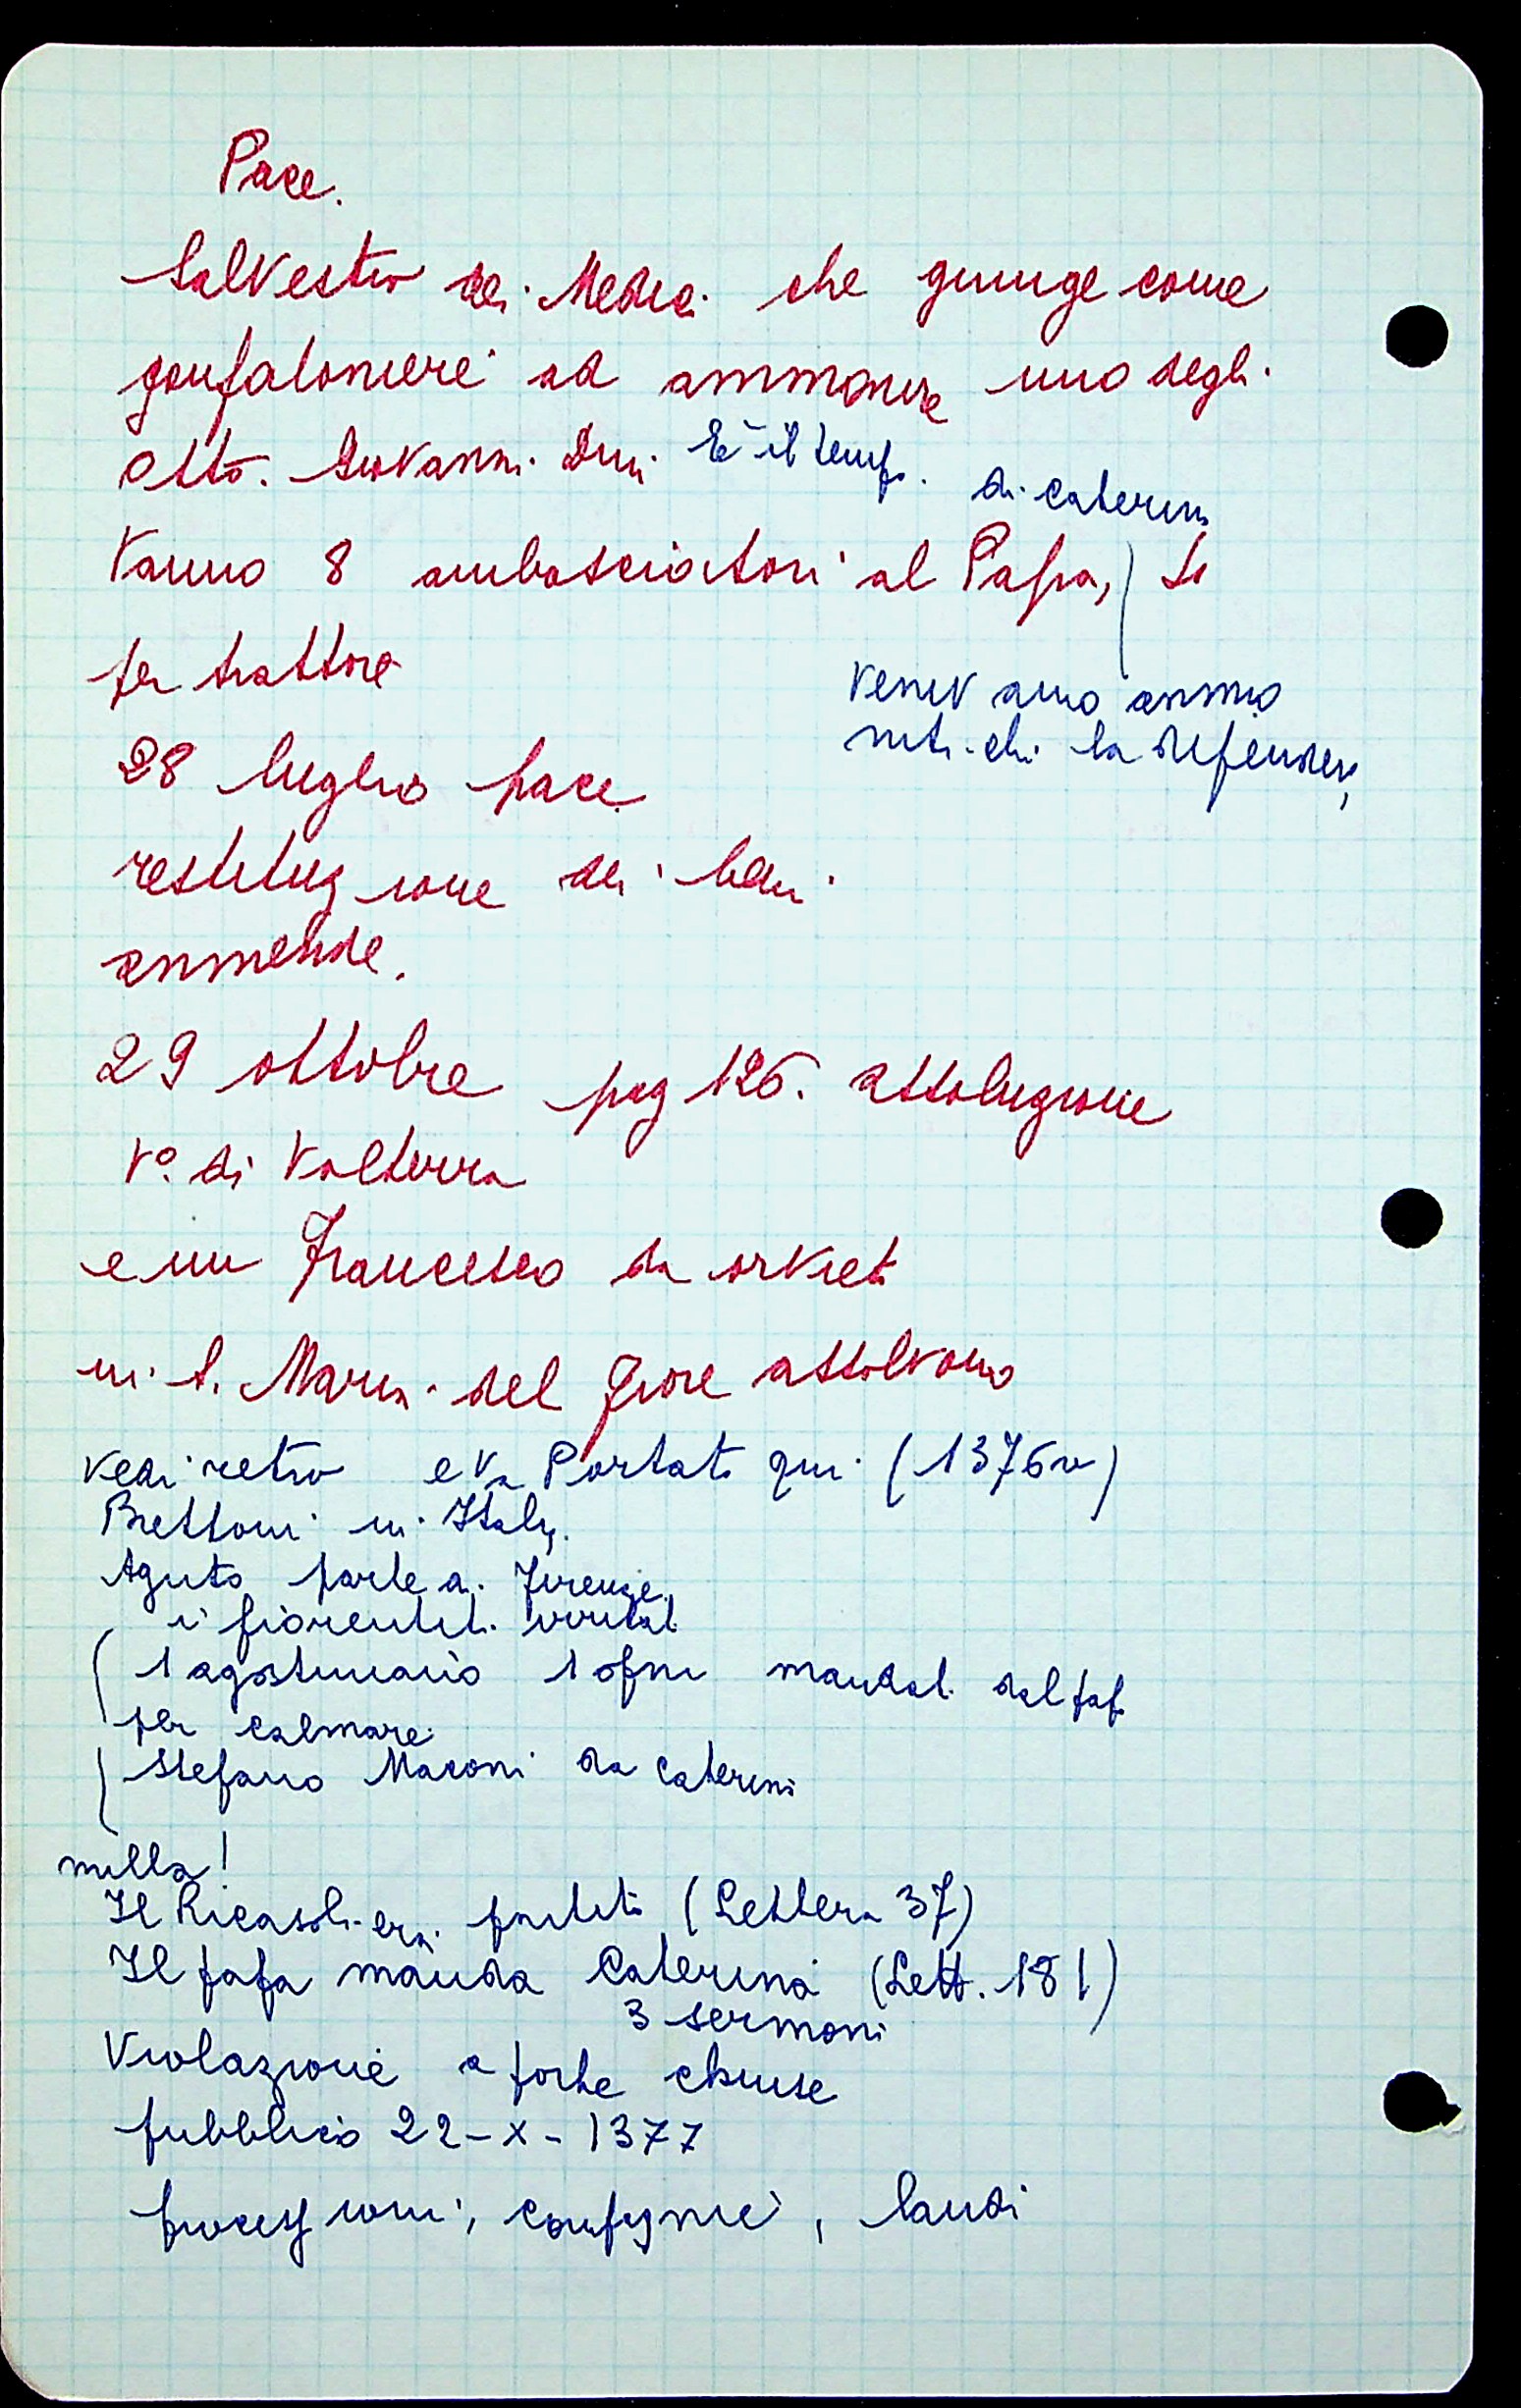 Pace.
Salvestro dei Medici che giunge come
gonfaloniere ad ammonire uno degli
Otto. Giovanni Dini È il tempo di Caterina
Vanno 8 ambasciatori al Papa,
per trattare
venivano ammo
niti chi la difendeva,
28 luglio pace
restituzione dei beni
ammende.
29 ottobre pag 126. assoluzione
Vº. di Volterra
e un Francesco da Orvieto
in S. Maria del Fiore assolvono
vedi retro e va Portato qui (1376
Brettoni in Italia.
Aguto parte a Firenze.
i fiorentini
1 agostiniano 1 mandati dal pap
per calmare
Stefano Maconi da Caterina
nulla!
Il Ricasoli era partito (Lettera 37)
Il papa manda Caterina (Lett. 181)
3 sermoni
Violazione a porte chiuse
pubblico 22-X-1377
processioni, compagnie, laudi